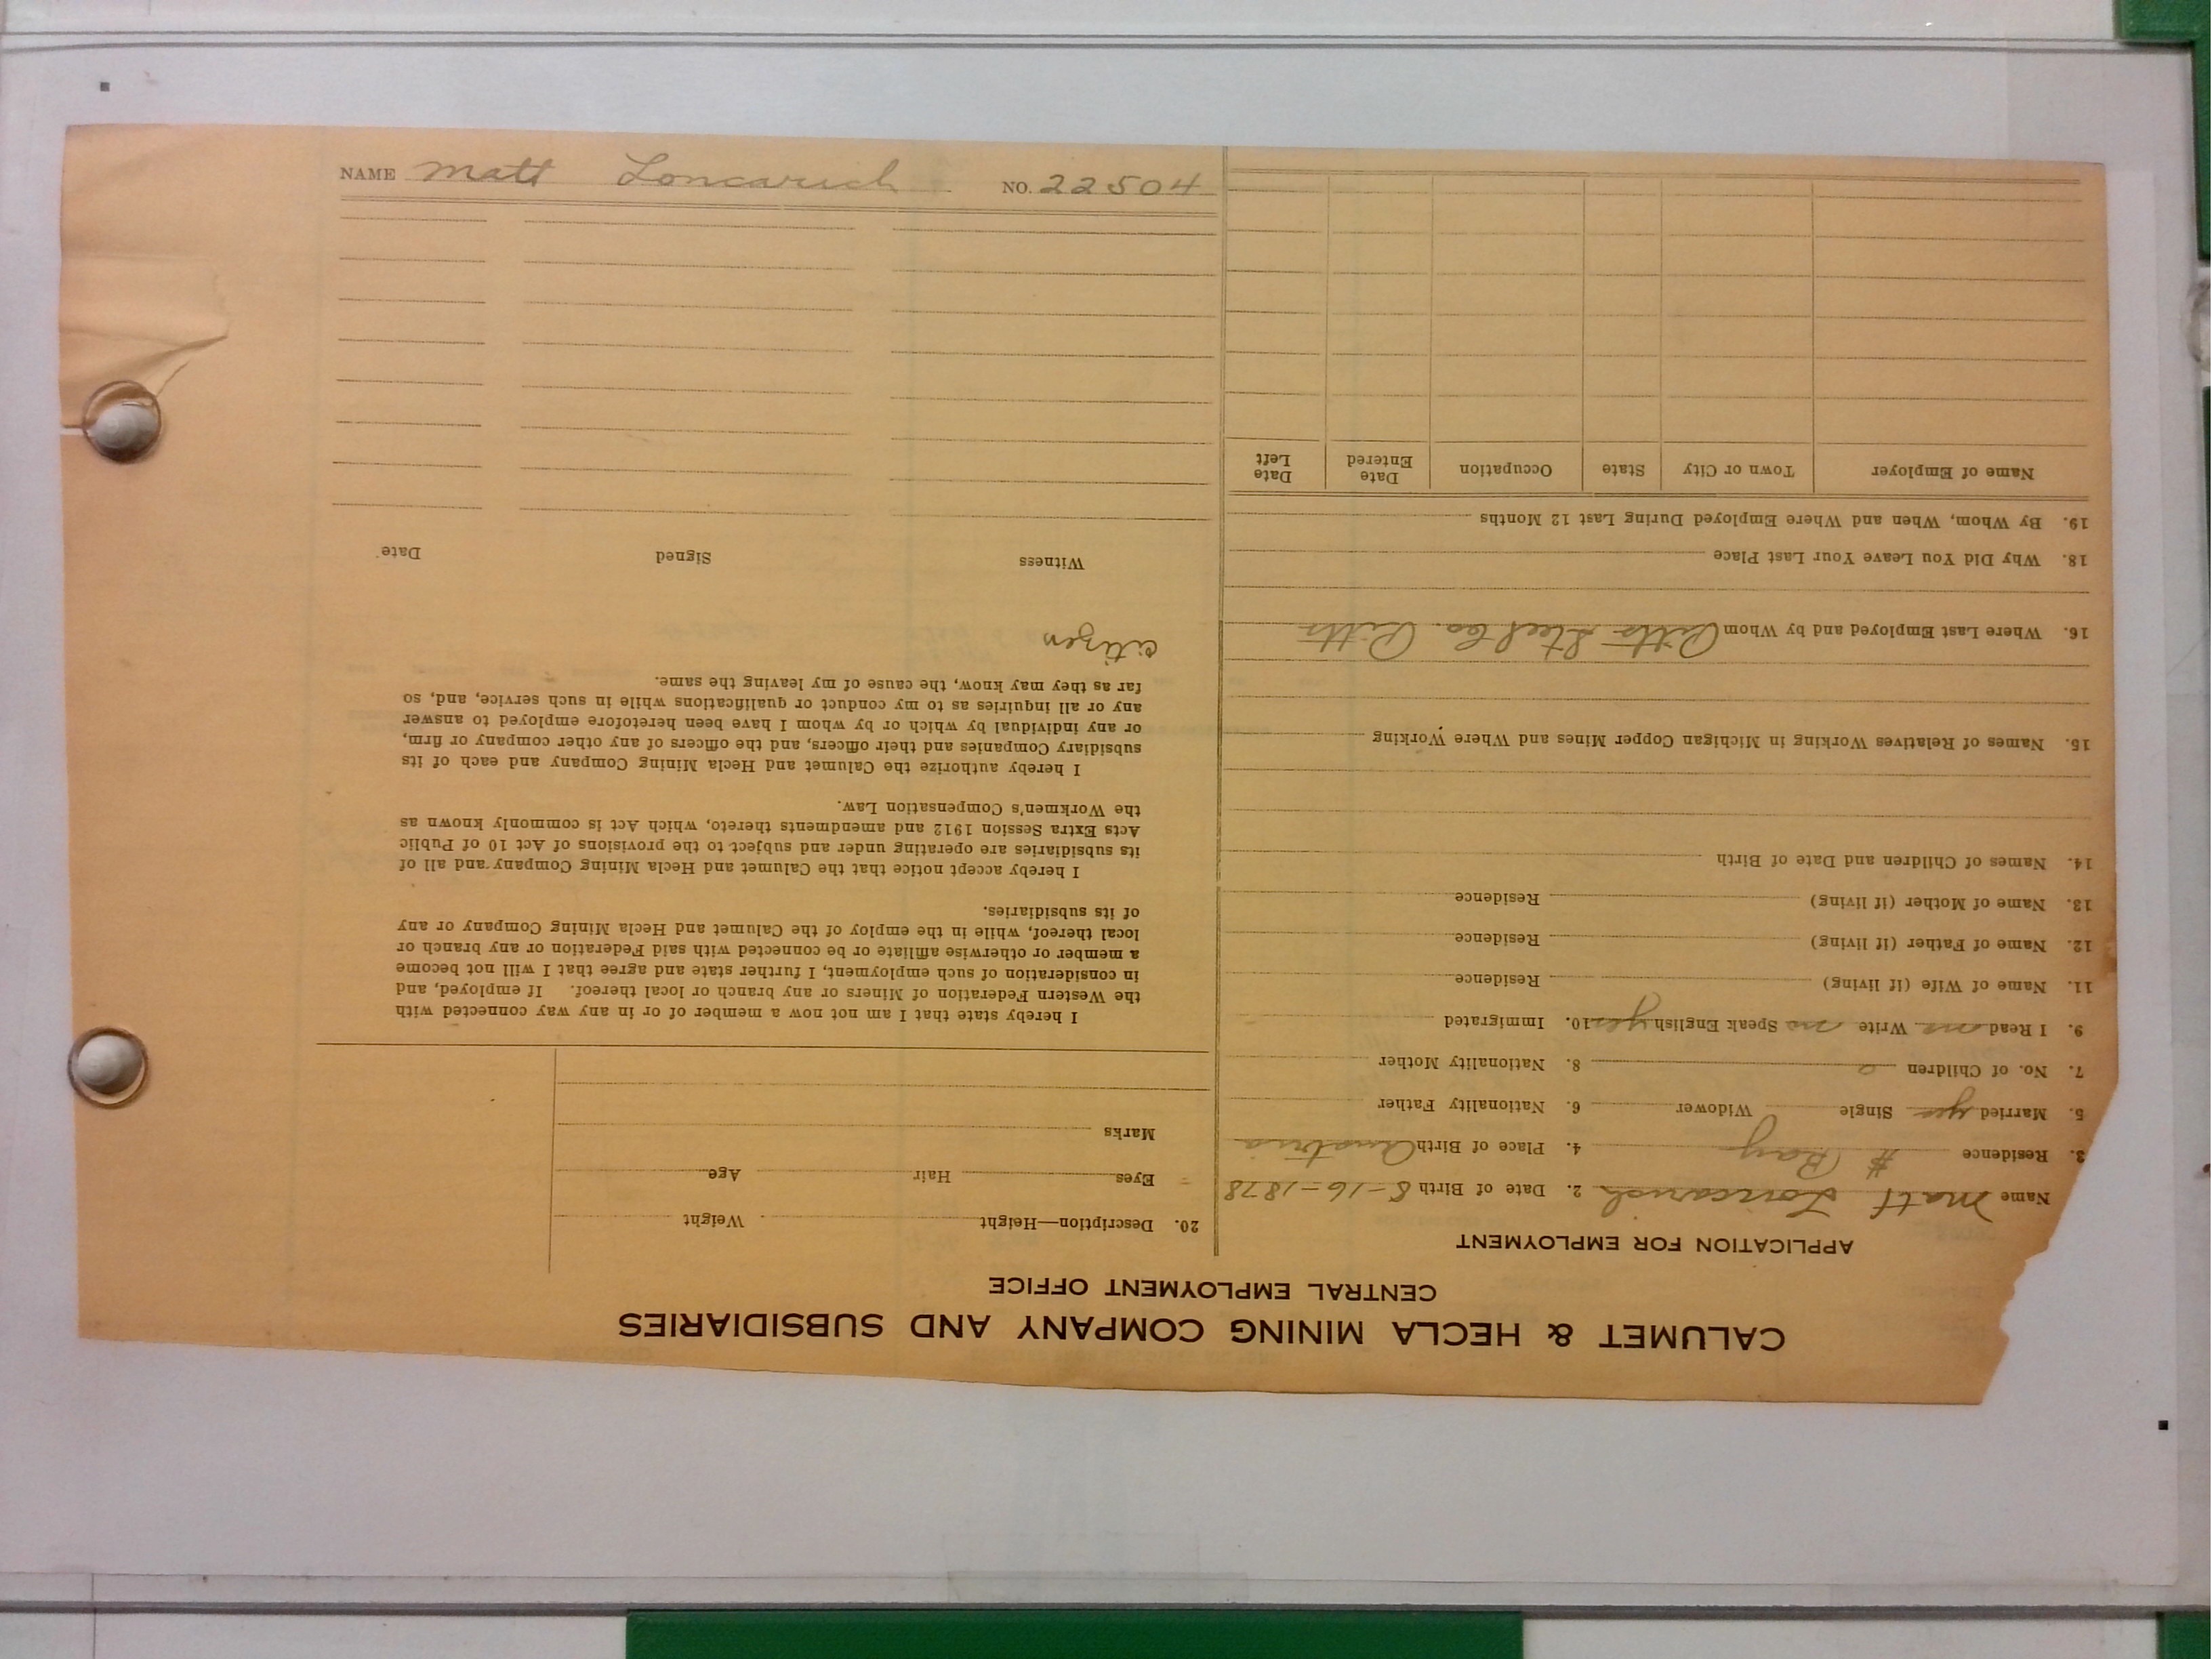 CALUMET & HECLA MINING COMPANY AND SUBSIDIARIES
CENTRAL EMPLOYMENT OFFICE
APPLICATION FOR EMPLOYMENT
Name Matt Loncarich 2. Date of Birth 8-16-1878
3. Residence # Bay 4. Place of Birth Austria
5. Married yes Single Widower 6. Nationality Father
7. No. of Children 8. Nationality Mother
9. I Read no Write no Speak English yes 10. Immigrated
11. Name of Wife (if living) Residence
12. Name of Father (if living) Residence
13. Name of Mother (if living) Residence
14. Names of Children and Date of Birth
15. Names of Relatives Working in Michigan Copper Mines and Where Working
16. Where Last Employed and by Whom Pitts Steel Co. Pitts
18. Why Did You Leave Your Last Place
19. By Whom, When and Where Employed During Last 12 Months
Name of Employer Town or City State Occupation Date Entered Date Left
20. Description—Height Weight
Eyes Hair Age
Marks
I hereby state that I am not now a member of or in any way connected with
the Western Federation of Miners or any branch or local thereof. If employed, and
in consideration of such employment, I further state and agree that I will not become
a member or otherwise affiliate or be connected with said Federation or any branch or
local thereof, while in the employ of the Calumet and Hecla Mining Company or any
of its subsidiaries.
I hereby accept notice that the Calumet and Hecla Mining Company and all of
its subsidiaries are operating under and subject to the provisions of Act 10 of Public
Acts Extra Session 1912 and amendments thereto, which Act is commonly known as
the Workmen's Compensation Law.
I hereby authorize the Calumet and Hecla Mining Company and each of its
subsidiary Companies and their officers, and the officers of any other company or firm,
or any individual by which or by whom I have been heretofore employed to answer
any or all inquiries as to my conduct or qualifications while in such service, and, so
far as they may know, the cause of my leaving the same.
citizen
Witness Signed Date
NAME Matt Loncarich NO. 22504